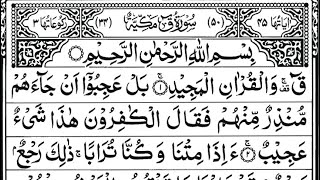 اٰیَاتُهَا ۴۵ (۵۰) سُوْرَةُ قٓ مَكِّیَّةٌ (۳۴) رُكُوْعَاتُهَا ۳
بِسْمِ اللّٰهِ الرَّحْمٰنِ الرَّحِیْمِ
قٓ ۚ وَالْقُرْاٰنِ الْمَجِیْدِ ۝۱ بَلْ عَجِبُوْۤا اَنْ جَآءَهُمْ
مُّنْذِرٌ مِّنْهُمْ فَقَالَ الْكٰفِرُوْنَ هٰذَا شَیْءٌ
عَجِیْبٌ ۝۲ ءَاِذَا مِتْنَا وَكُنَّا تُرَابًا ۚ ذٰلِكَ رَجْعٌۢ